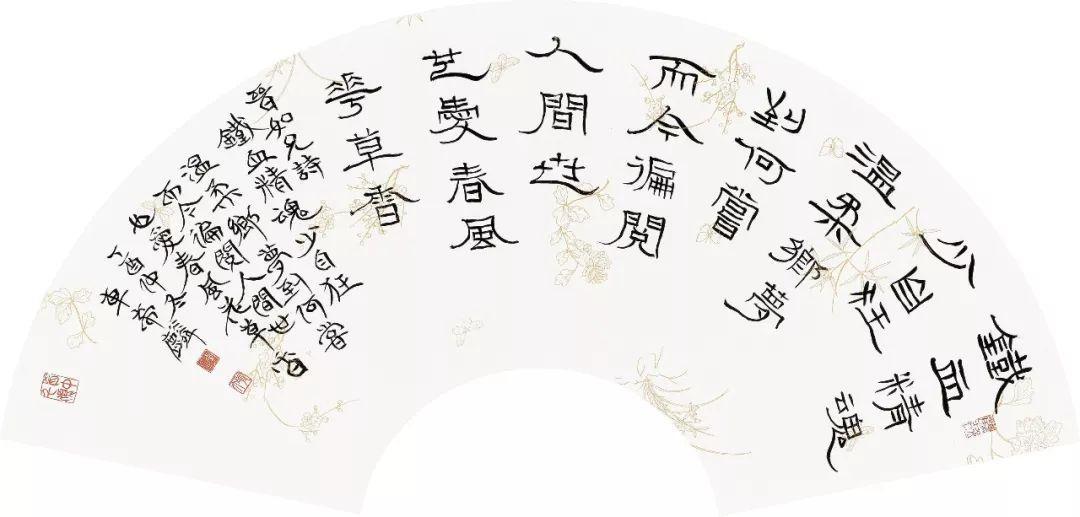 鐵血精魂
少自狂
溫柔鄉夢
到何嘗
而今徧閱
人間世
也愛春風
華草香
晉如兄詩
鐵血精魂少自狂
溫柔鄉夢到何嘗
而今徧閱人間世
也愛春風花草香
丁酉仲冬